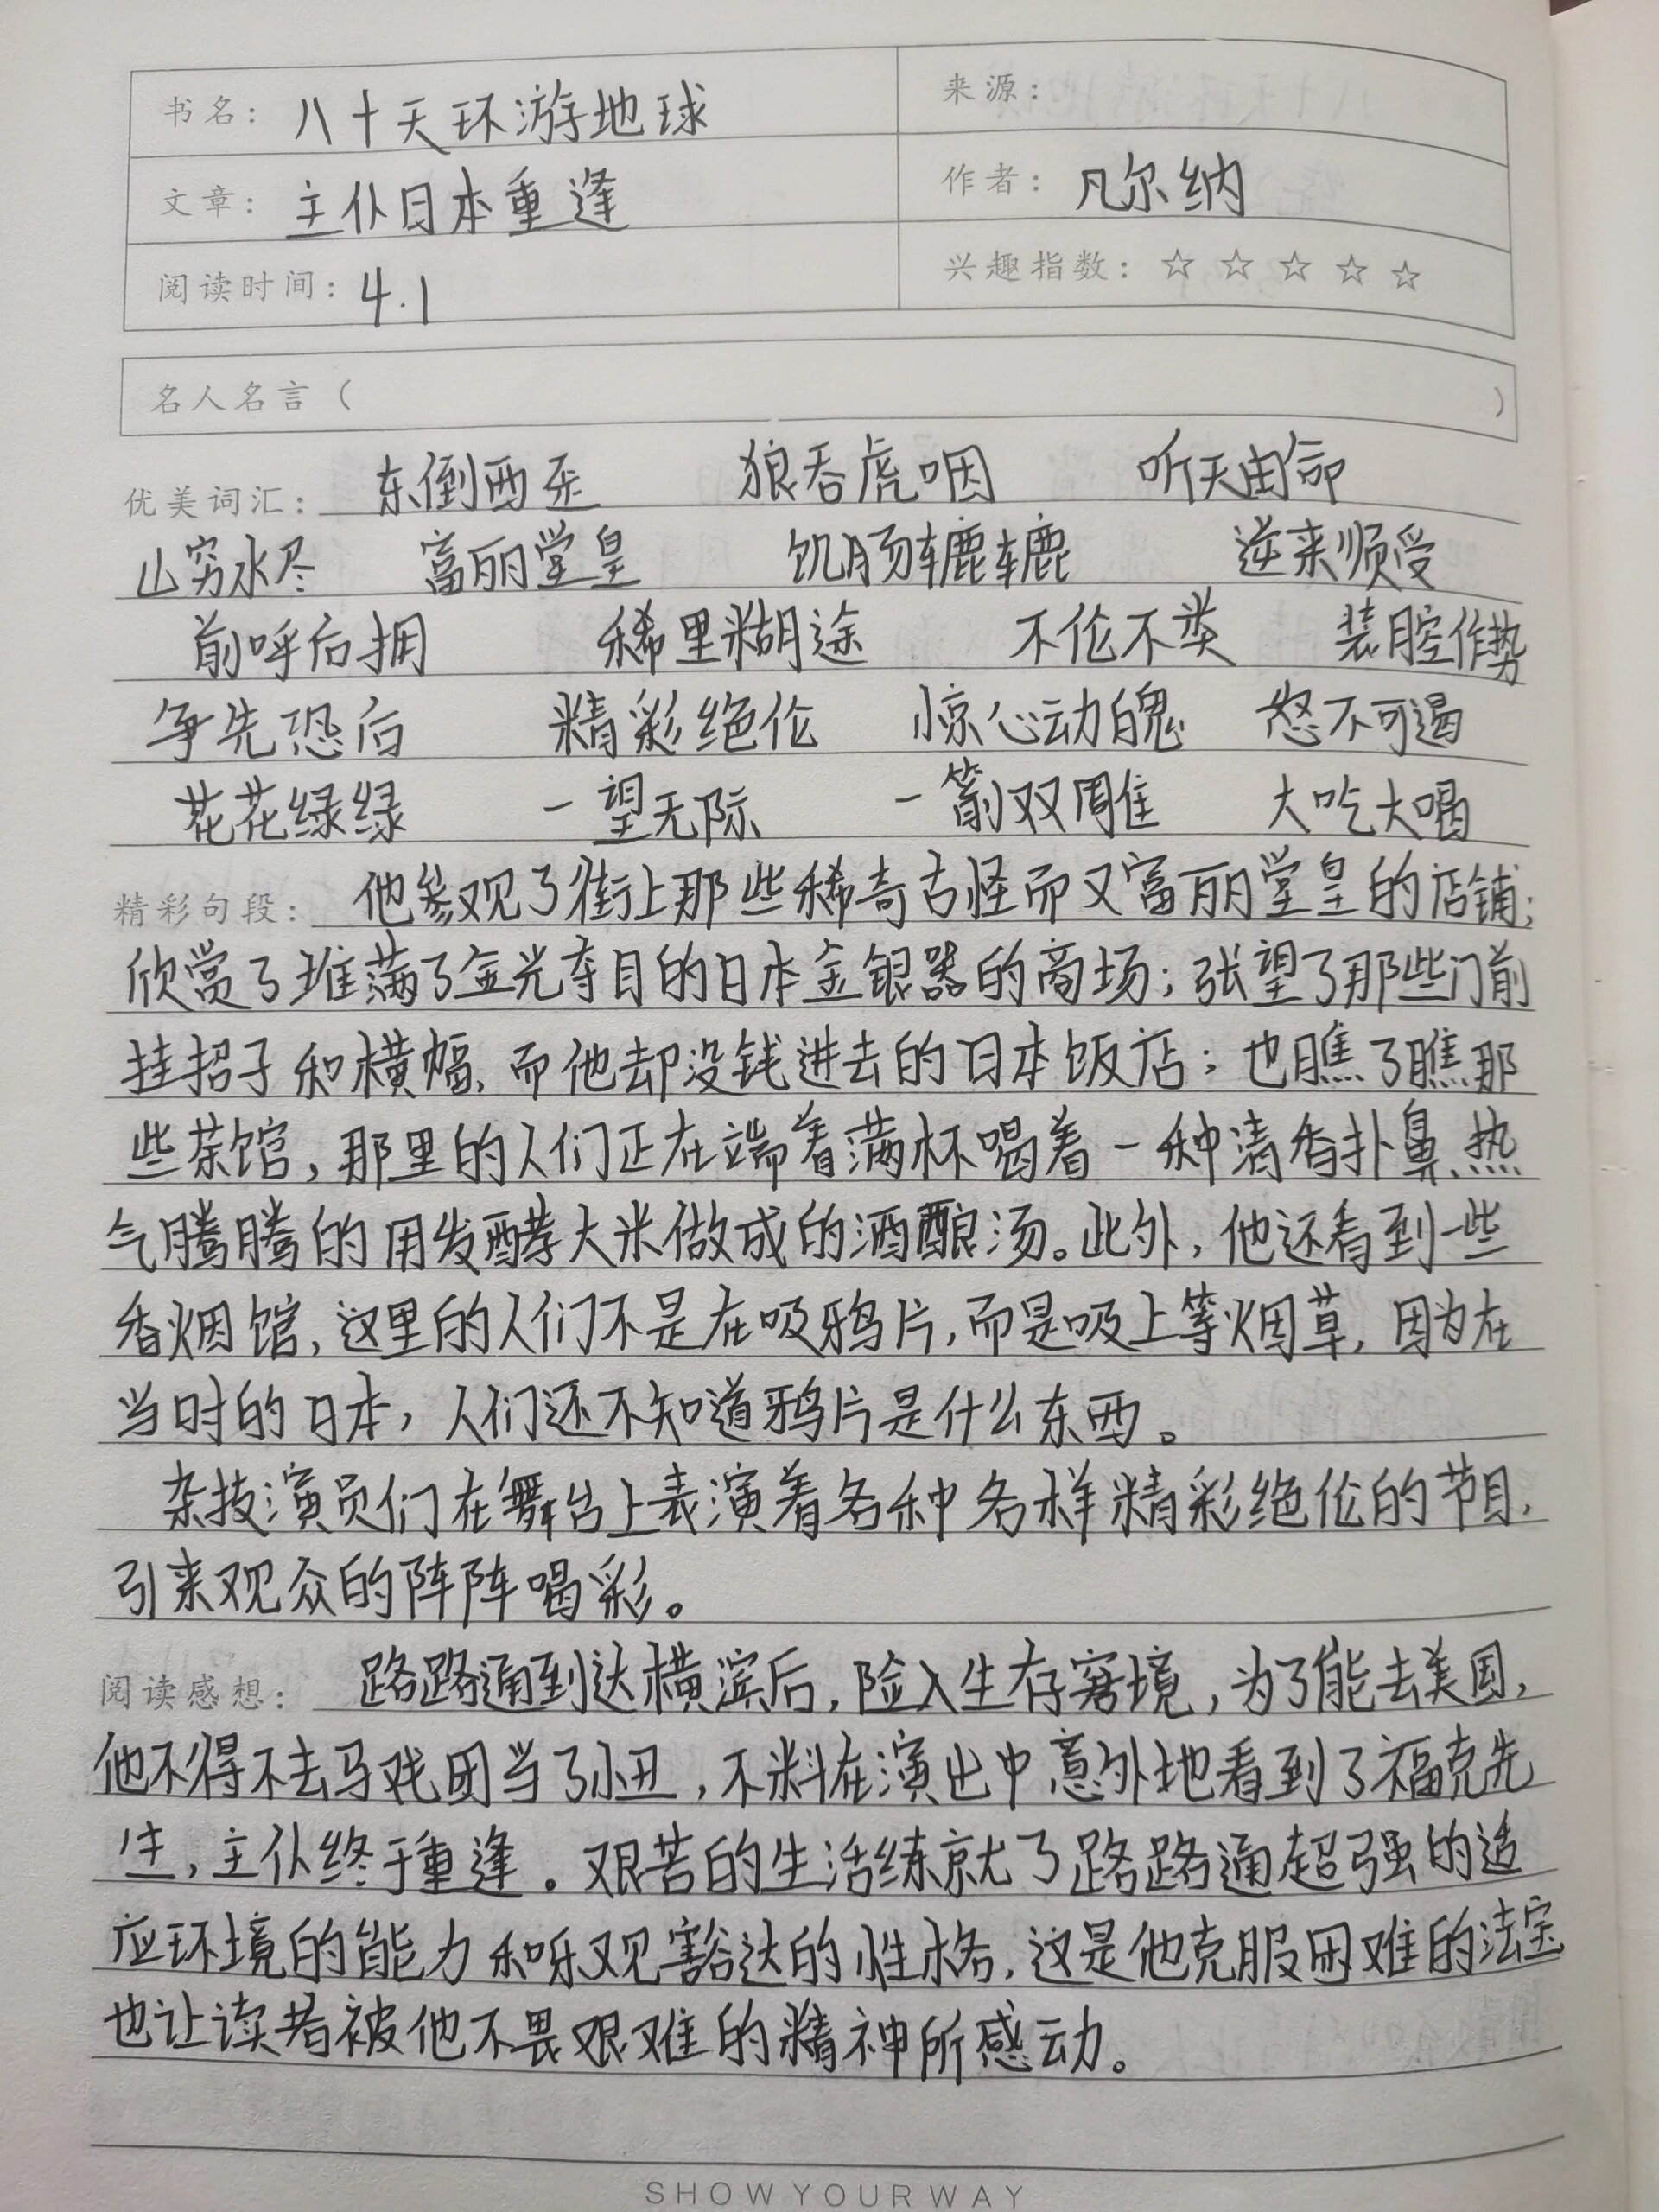 书名：八十天环游地球
来源：
文章：主仆日本重逢
作者：凡尔纳
阅读时间：4.1
兴趣指数：☆ ☆ ☆ ☆ ☆
名人名言（ ）
优美词汇：东倒西歪 狼吞虎咽 听天由命
山穷水尽 富丽堂皇 饥肠辘辘 逆来顺受
前呼后拥 稀里糊涂 不伦不类 装腔作势
争先恐后 精彩绝伦 惊心动魄 怒不可遏
花花绿绿 一望无际 一箭双雕 大吃大喝
精彩句段：他参观了街上那些稀奇古怪而又富丽堂皇的店铺；
欣赏了堆满了金光夺目的日本金银器的商场；张望了那些门前
挂招子和横幅，而他却没钱进去的日本饭店；也瞧了瞧那
些茶馆，那里的人们正在端着满杯喝着一种清香扑鼻、热
气腾腾的用发酵大米做成的酒酿汤。此外，他还看到一些
香烟馆，这里的人们不是在吸鸦片，而是吸上等烟草，因为在
当时的日本，人们还不知道鸦片是什么东西。
杂技演员们在舞台上表演着各种各样精彩绝伦的节目，
引来观众的阵阵喝彩。
阅读感想：路路通到达横滨后，险入生存窘境，为了能去美国，
他不得不去马戏团当了小丑，不料在演出中意外地看到了福克先
生，主仆终于重逢。艰苦的生活练就了路路通超强的适
应环境的能力和乐观豁达的性格，这是他克服困难的法宝
也让读者被他不畏艰难的精神所感动。
SHOW YOUR WAY